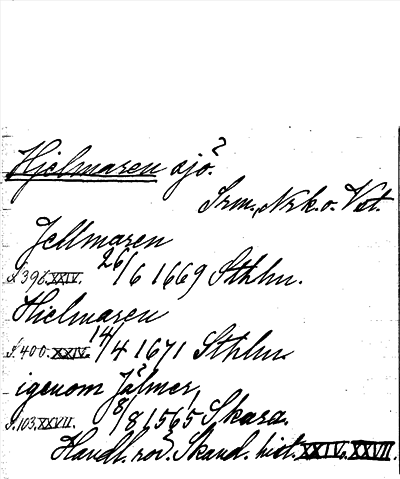 Hjelmaren sjö.
Srm., Nrk. o. Vst.
Jellmaren
s. 396. XXIV. 26/6 1669 Sthlm.
Hielmaren
s. 400. XXIV. 14/4 1671 Sthlm
igenom Jälmer,
s. 103. XXVII. 8/8 1565 Skara.
Handl. rör. Skand. hist. XXIV. XXVII.